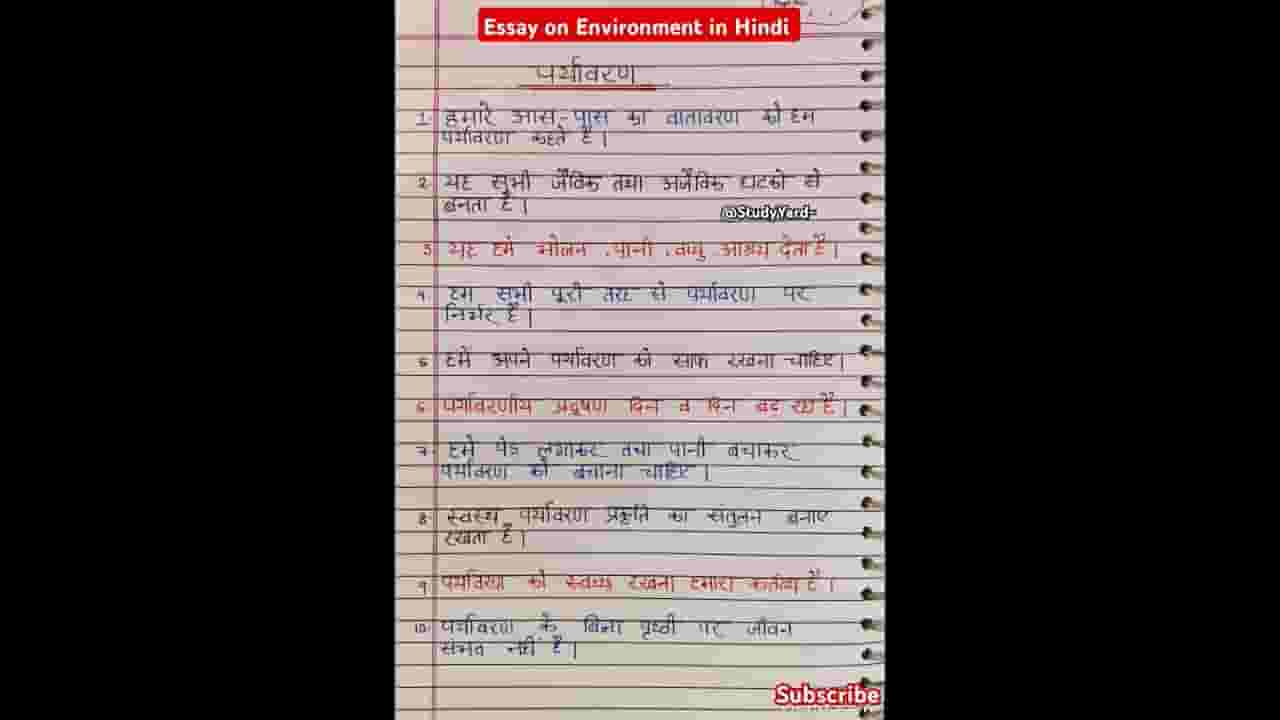 Essay on Environment in Hindi
पर्यावरण
1. हमारे आस-पास का वातावरण को हम
पर्यावरण कहते हैं।
2. यह सभी जैविक तथा अजैविक घटको से
बनता है।
@StudyYard-
3. यह हमे भोजन, पानी, वायु, आश्रय देता है।
4. हम सभी पूरी तरह से पर्यावरण पर
निर्भर हैं।
5. हमें अपने पर्यावरण को साफ रखना चाहिए।
6. पर्यावरणीय प्रदूषण दिन व दिन बढ़ रहा है।
7. हमें पेड़ लगाकर तथा पानी बचाकर
पर्यावरण को बचाना चाहिए।
8. स्वस्थ पर्यावरण प्रकृति का संतुलन बनाए
रखता है।
9. पर्यावरण को स्वच्छ रखना हमारा कर्तव्य है।
10. पर्यावरण के बिना पृथ्वी पर जीवन
संभव नहीं है।
Subscribe